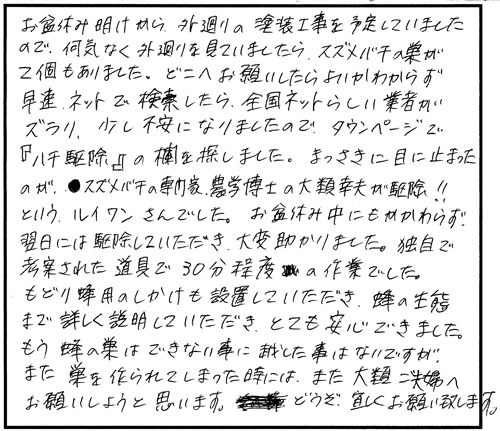 お盆休み明けから、外廻りの塗装工事を予定していました
ので、何気なく外廻りを見ていましたら、スズメバチの巣が
2個もありました。どこへお願いしたらよいかわからず
早速、ネットで検索したら、全国ネットらしい業者が
ズラリ、少し不安になりましたので、タウンページで
『ハチ駆除』の欄を探しました。まっさきに目に止まった
のが、●スズメバチの専門家、農学博士の大類幸夫が駆除!!
という、ルイワンさんでした。お盆休み中にもかかわらず、
翌日には駆除していただき、大変助かりました。独自で
考案された道具で30分程度の作業でした。
もどり蜂用のしかけも設置していただき、蜂の生態
まで詳しく説明していただき、とても安心できました。
もう蜂の巣はできない事に越した事はないですが、
また巣を作られてしまった時には、また大類ご夫婦へ
お願いしようと思います。どうぞ、宜しくお願い致します。